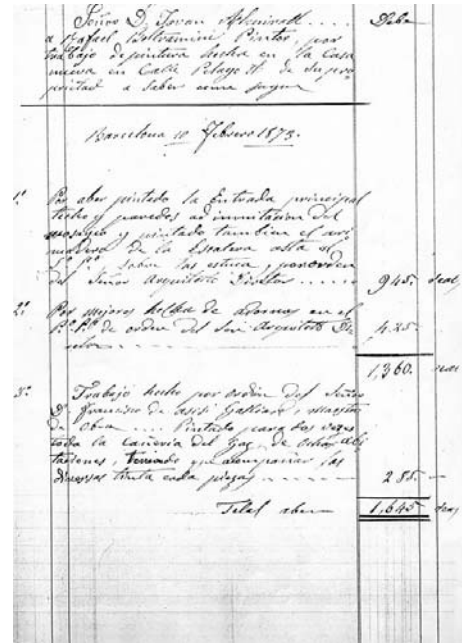 Señor D. Jovan .... Debe
a Rafael Beltramini Pintor, por
trabajo de pintura hecha en la Casa
nueva en Calle Pelayo de Su pro
piedad a Saber como sigue
Barcelona 10 Febrero 1873.
1º Por aber pintado la Entrada principal
techo y paredes ad immitacion del
mosayco y pintado tambien el
de la Escalera asta el
Sobre las y por orden
del Señor Arquitecto ..... 945. real,
2º Por mejores de adornos en el
P.º P.º de orden del Sor Arquitecto
425.
1,360. real
3º Trabajo hecho por orden del Señor
D. Francisco de asisi maestro
de Obra .... Pintado para dos veces
toda la Cañeria del Gas de
taciones, teniendo que acompañar las
diversas tinta cada pieza 285. —
Total 1,645 real